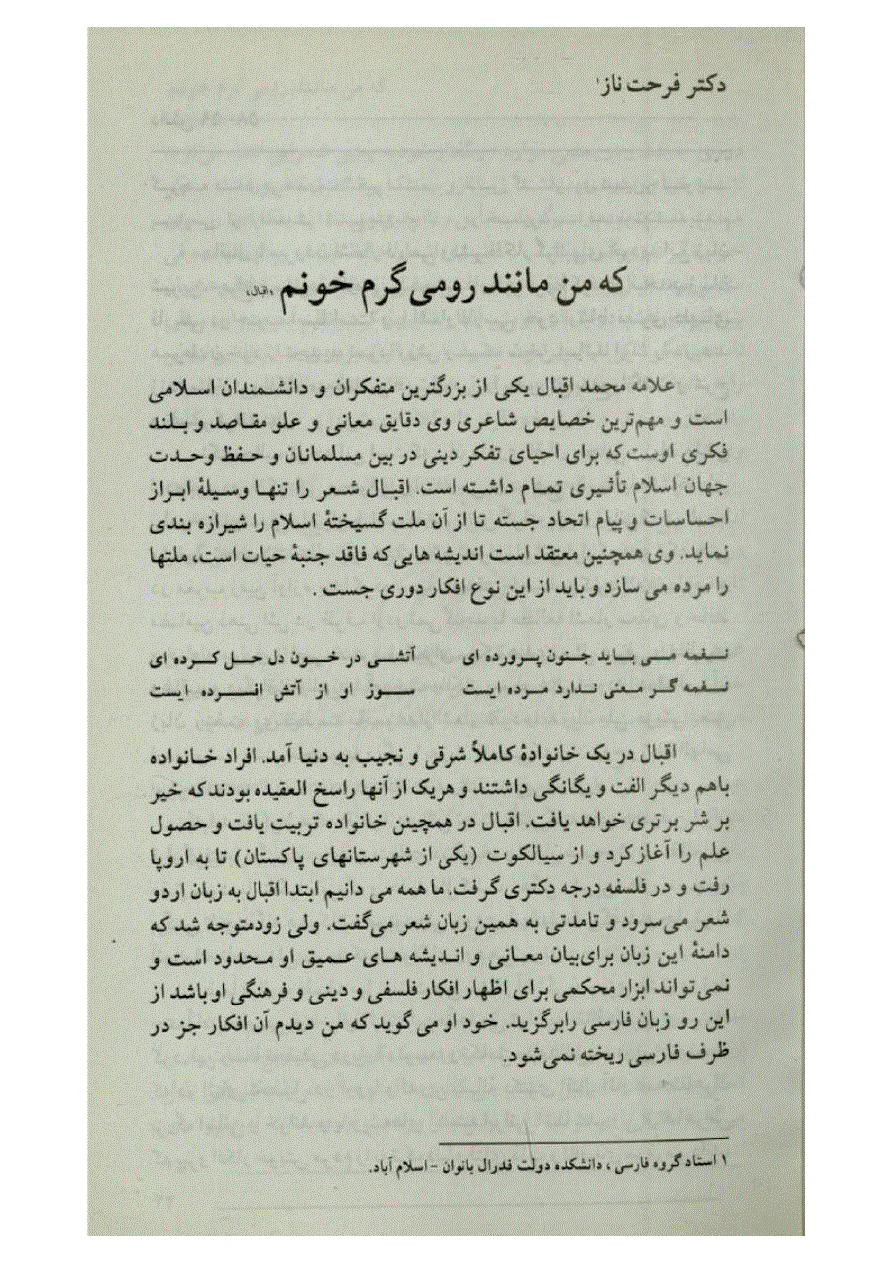 دکتر فرحت ناز۱
که من مانند رومی گرم خونم «اقبال»
علامه محمد اقبال یکی از بزرگترین متفکران و دانشمندان اسلامی
است و مهم‌ترین خصایص شاعری وی دقایق معانی و علو مقاصد و بلند
فکری اوست که برای احیای تفکر دینی در بین مسلمانان و حفظ وحدت
جهان اسلام تأثیری تمام داشته است. اقبال شعر را تنها وسیلهٔ ابراز
احساسات و پیام اتحاد جسته تا از آن ملت گسیختهٔ اسلام را شیرازه بندی
نماید. وی همچنین معتقد است اندیشه هایی که فاقد جنبهٔ حیات است، ملتها
را مرده می سازد و باید از این نوع افکار دوری جست .
نغمه مـی بـاید جنون پـرورده ای آتشی در خـون دل حـل کـرده ای
نـغمه گـر معنی نـدارد مـرده ایست سـوز او از آتش افسـرده ایست
اقبال در یک خانوادهٔ کاملاً شرقی و نجیب به دنیا آمد. افراد خانواده
باهم دیگر الفت و یگانگی داشتند و هریک از آنها راسخ العقیده بودند که خیر
بر شر برتری خواهد یافت. اقبال در همچینن خانواده تربیت یافت و حصول
علم را آغاز کرد و از سیالکوت (یکی از شهرستانهای پاکستان) تا به اروپا
رفت و در فلسفه درجه دکتری گرفت. ما همه می دانیم ابتدا اقبال به زبان اردو
شعر می‌سرود و تامدتی به همین زبان شعر می‌گفت. ولی زودمتوجه شد که
دامنهٔ این زبان برای‌بیان معانی و اندیشه های عمیق او محدود است و
نمی‌تواند ابزار محکمی برای اظهار افکار فلسفی و دینی و فرهنگی او باشد از
این رو زبان فارسی رابرگزید. خود او می گوید که من دیدم آن افکار جز در
ظرف فارسی ریخته نمی‌شود.
۱ استاد گروه فارسی ، دانشکده دولت فدرال بانوان - اسلام آباد.